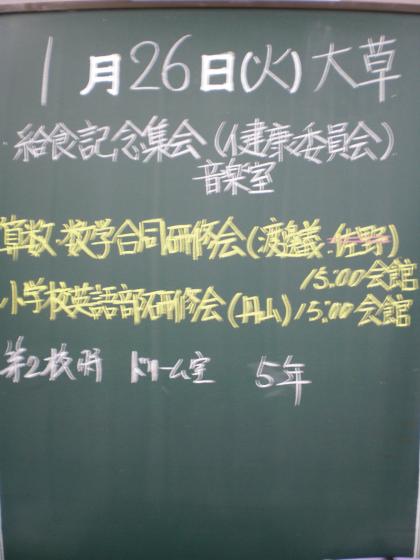 1月26日(火)大草
給食記念集会(健康委員会)
音楽室
算数・数学合同研修会(渡邊義・佐野)
15:00会館
小学校英語部研修会(丹山)15:00会館
第2校時 ドリーム室 5年